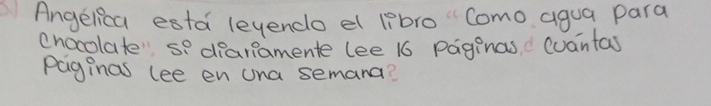 3) Angélica está leyendo el libro "Como agua para
chocolate". Si diariamente lee 16 páginas, ¿ cuántas
páginas lee en una semana?